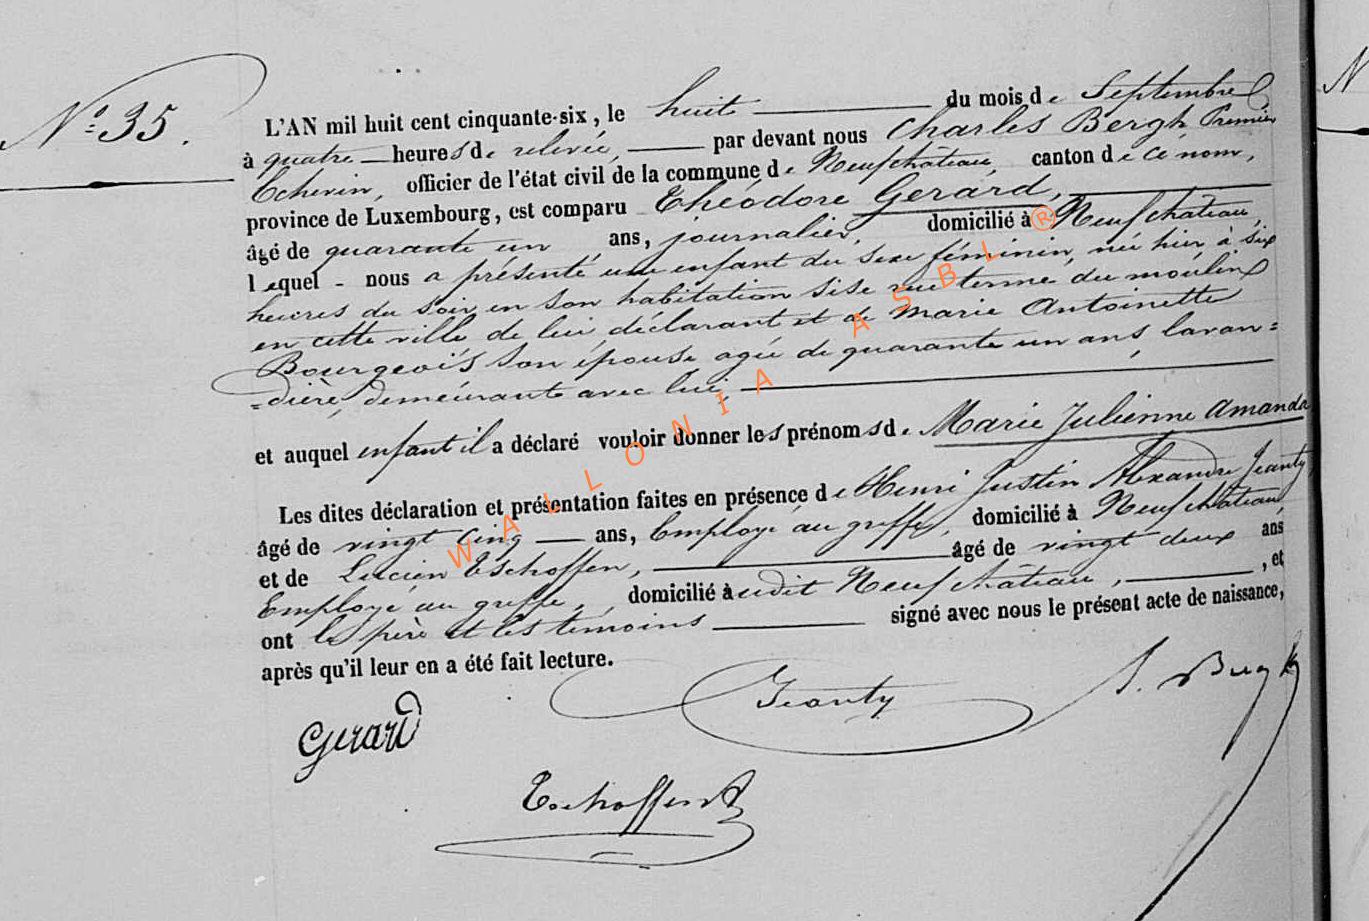 N
N° 35.
L'AN mil huit cent cinquante-six, le huit du mois de Septembre
à quatre heures de relevée, par devant nous Charles Bergh Premier
Echevin, officier de l'état civil de la commune de Neufchâteau, canton de ce nom,
province de Luxembourg, est comparu Théodore Gerard,
âgé de quarante un ans, journalier, domicilié à Neufchâteau,
lequel - nous a présenté une enfant du sexe féminin, née hier à six
heures du soir, en son habitation sise rue terme du moulin
en cette ville de lui déclarant et de Marie Antoinette
Bourgeois son épouse agée de quarante un ans, lavan=
=dière, demeurante avec lui,
et auquel enfant il a déclaré vouloir donner les prénoms de Marie Julienne Amanda
Les dites déclaration et présentation faites en présence de Henri Justin Alexandre Jeanty
âgé de vingt cinq ans, Employé au greffe, domicilié à Neufchâteau
et de Lucien Eschoffen, âgé de vingt deux ans
Employé au greffe, domicilié audit Neufchâteau, , et
ont les père et les témoins signé avec nous le présent acte de naissance,
après qu'il leur en a été fait lecture.
Jeanty
Gerard
Eschoffen
WALLONIA ASBL ®